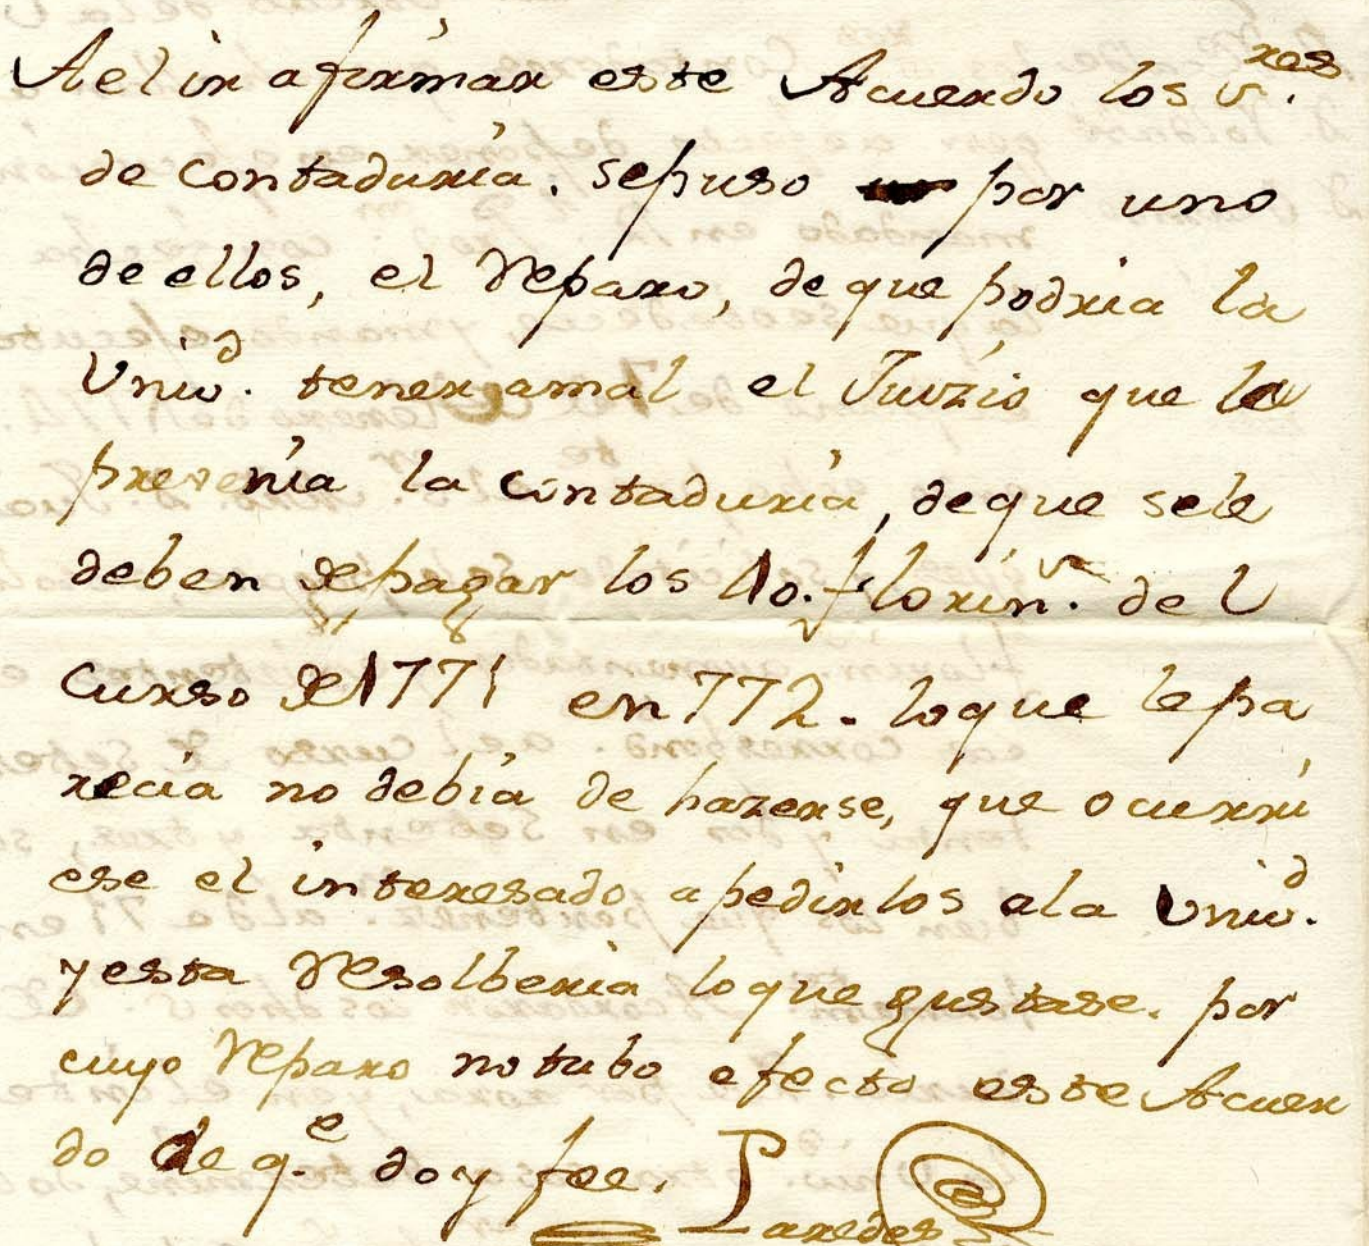 Ael ir afirmar este Acuerdo los S.res
de Contaduría. sepuso por uno
de ellos, el Reparo, de que podria la
Univ.d tener amal el Juizio que la
prevenía la Contaduría, de que sele
deben de pagar los 10. florin.s del
Curso de 1771 en 772. loque lepa
recia no debia de hazerse, que ocurri
ese el interesado a pedirlos ala Univ.d
y esta Resolberia loque gustase. por
cuyo Reparo no tubo efecto este Acuer
do de q.e doy fee. Paredes